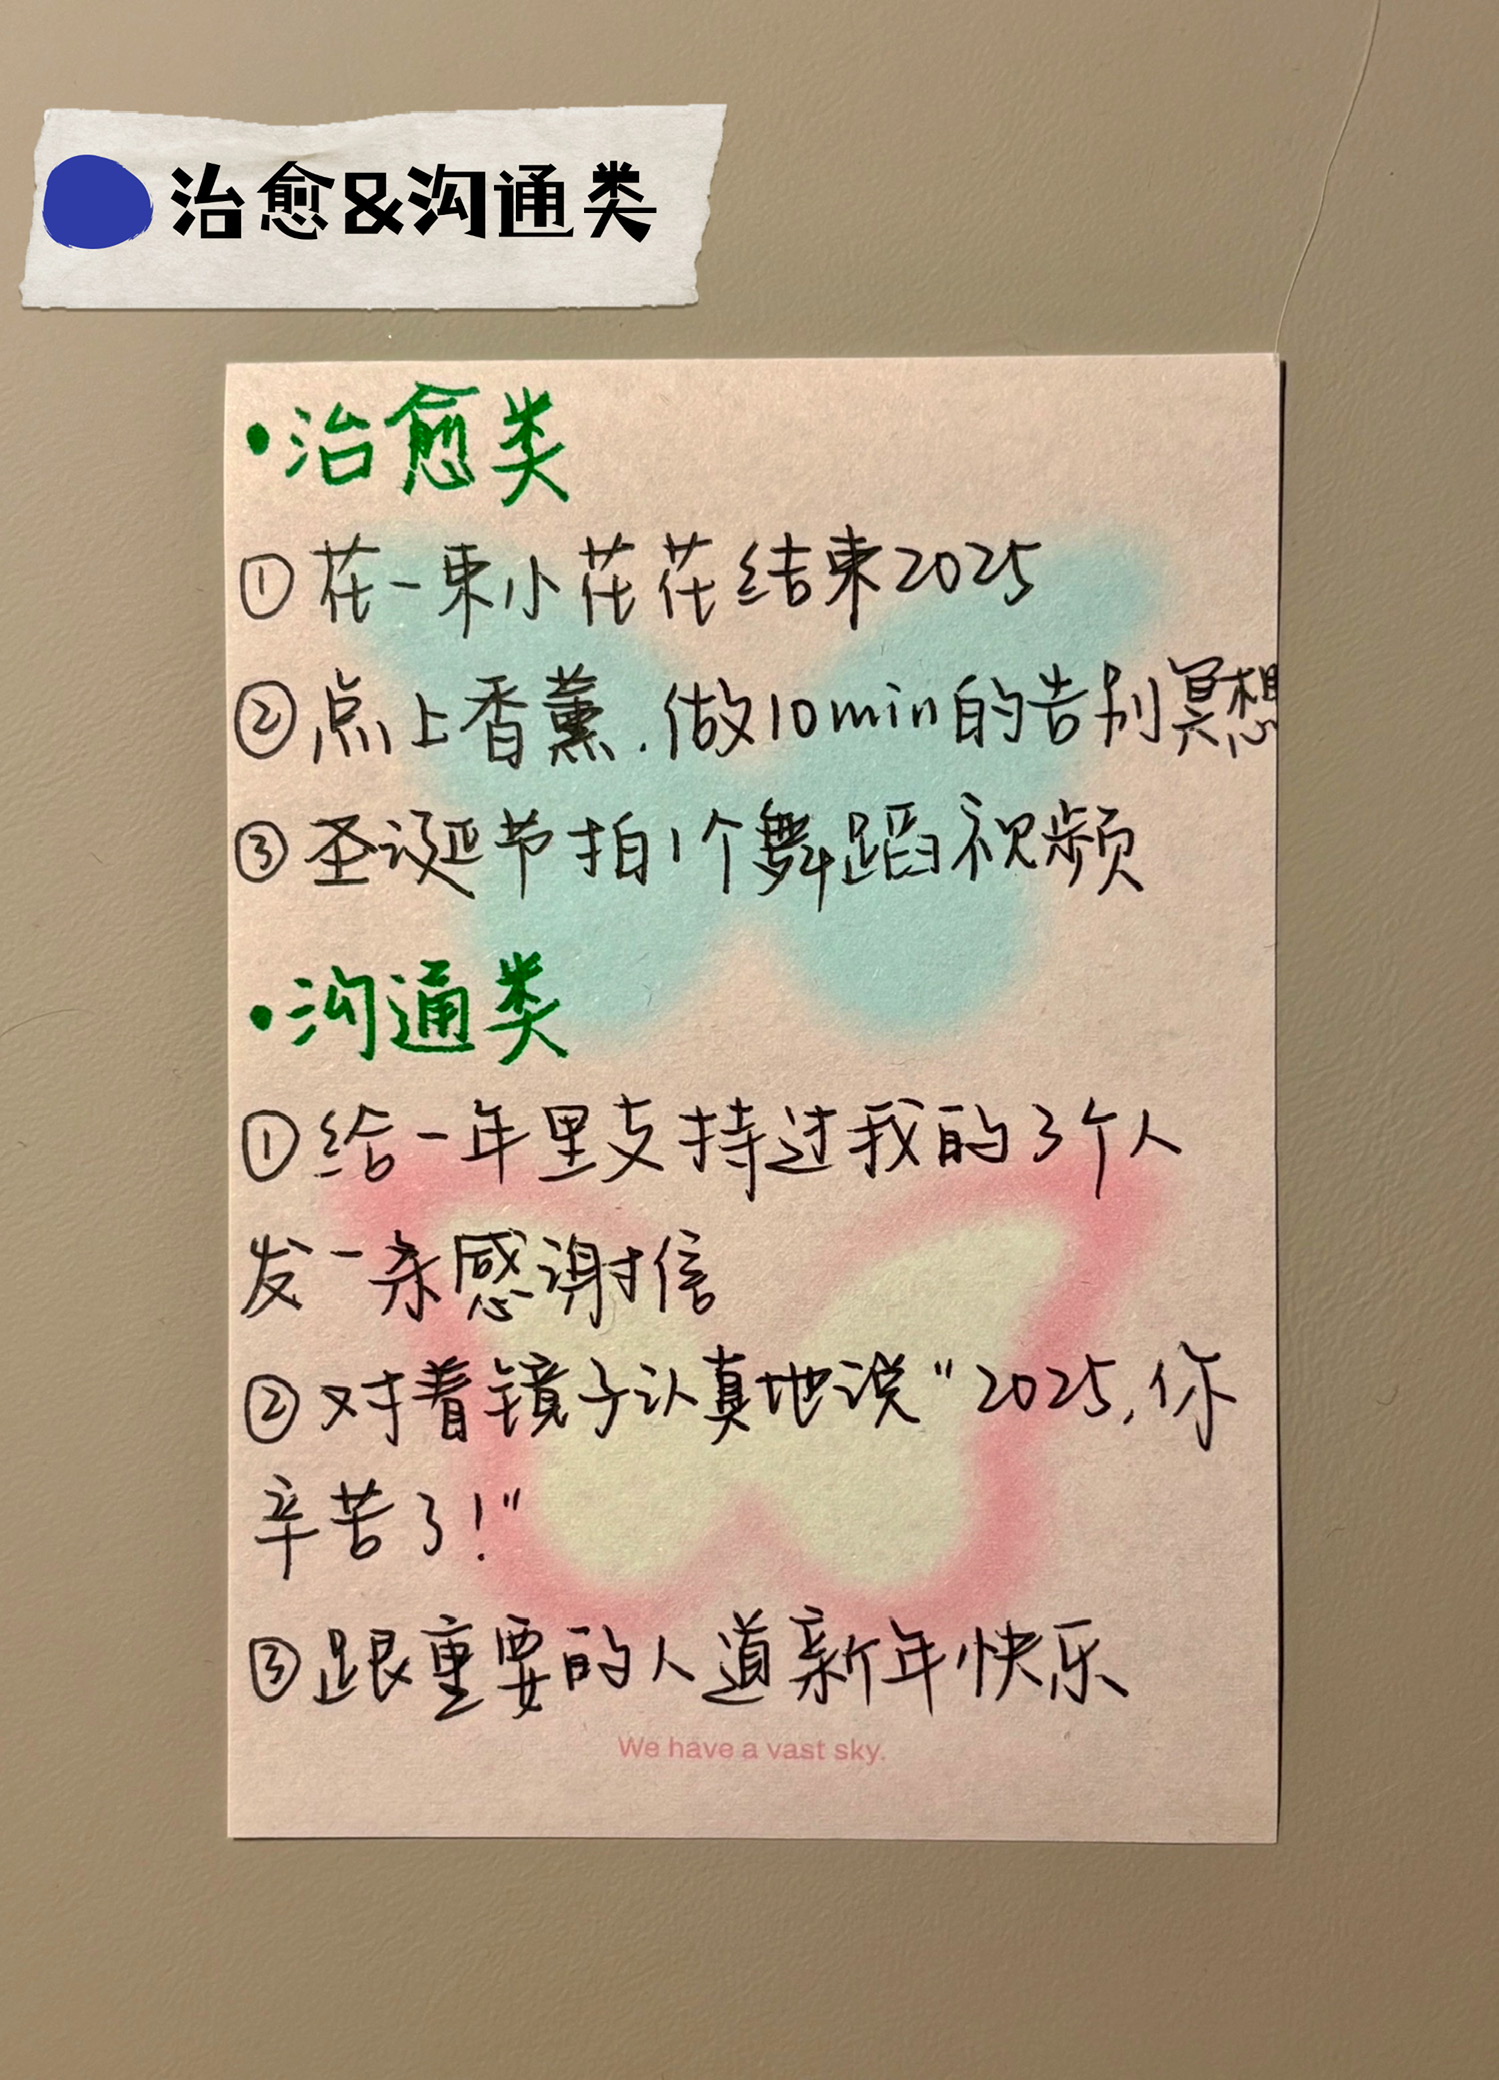 治愈&沟通类
•治愈类
①花一束小花花结束2025
②点上香薰.做10min的告别冥想
③圣诞节拍1个舞蹈视频
•沟通类
①给一年里支持过我的3个人
发一条感谢信
②对着镜子认真地说"2025,你
辛苦了!"
③跟重要的人道新年快乐
We have a vast sky.